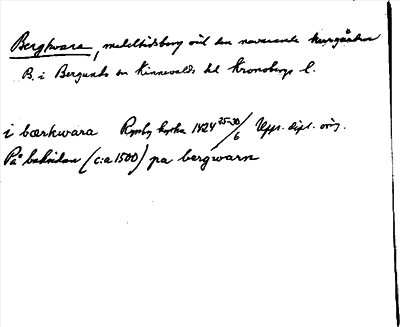 Bergkvara, medeltidsborg vid den nuvarande herrgården
B. i Bergunda sn Kinnevalds hd Kronobergs l.
i bærkwara Ryssby kyrka 1424 25-30/6 Upps. dipl. orig.
På baksidan (c:a 1500) pa bergwara